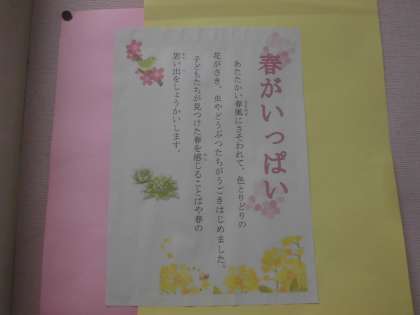 春がいっぱい
あたたかい春風にさそわれて、色とりどりの
花がさき、虫やどうぶつたちがうごきはじめました。
子どもたちが見つけた春を感じることばや春の
思い出をしょうかいします。